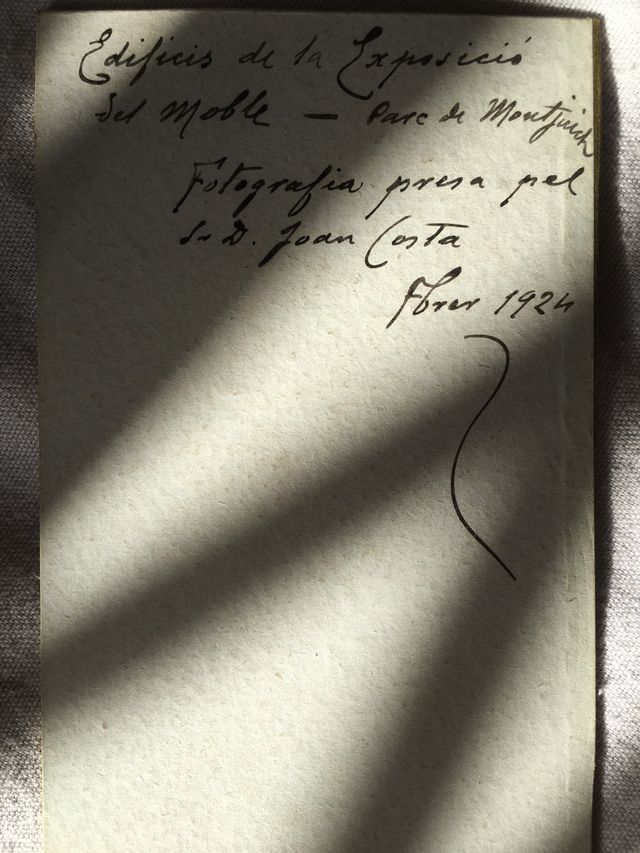 Edificis de la Exposició
del Moble — Parc de Montjuich
Fotografia presa pel
Sr D. Joan Costa
Fbrer 1924